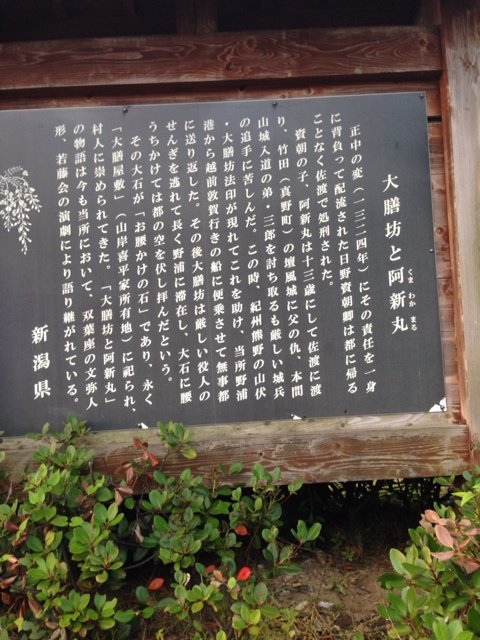 大膳坊と阿新丸
くま わか まる
正中の変（一三二四年）にその責任を一身
に背負って配流された日野資朝卿は都に帰る
ことなく佐渡で処刑された。
資朝の子、阿新丸は十三歳にして佐渡に渡
り、竹田（真野町）の壇風城に父の仇、本間
山城入道の弟・三郎を討ち取るも厳しい城兵
の追手に苦しんだ。この時、紀州熊野の山伏
・大膳坊法印が現れてこれを助け、当所野浦
港から越前敦賀行きの船に便乗させて無事都
に送り返した。その後大膳坊は厳しい役人の
せんぎを逃れて長く野浦に滞在し、大石に腰
うちかけては都の空を伏し拝んだという。
その大石が「お腰かけの石」であり、永く
「大膳屋敷」（山岸喜平家所有地）に祀られ、
村人に崇められてきた。「大膳坊と阿新丸」
の物語は今も当所において、双葉座の文弥人
形、若藤会の演劇により語り継がれている。
新潟県